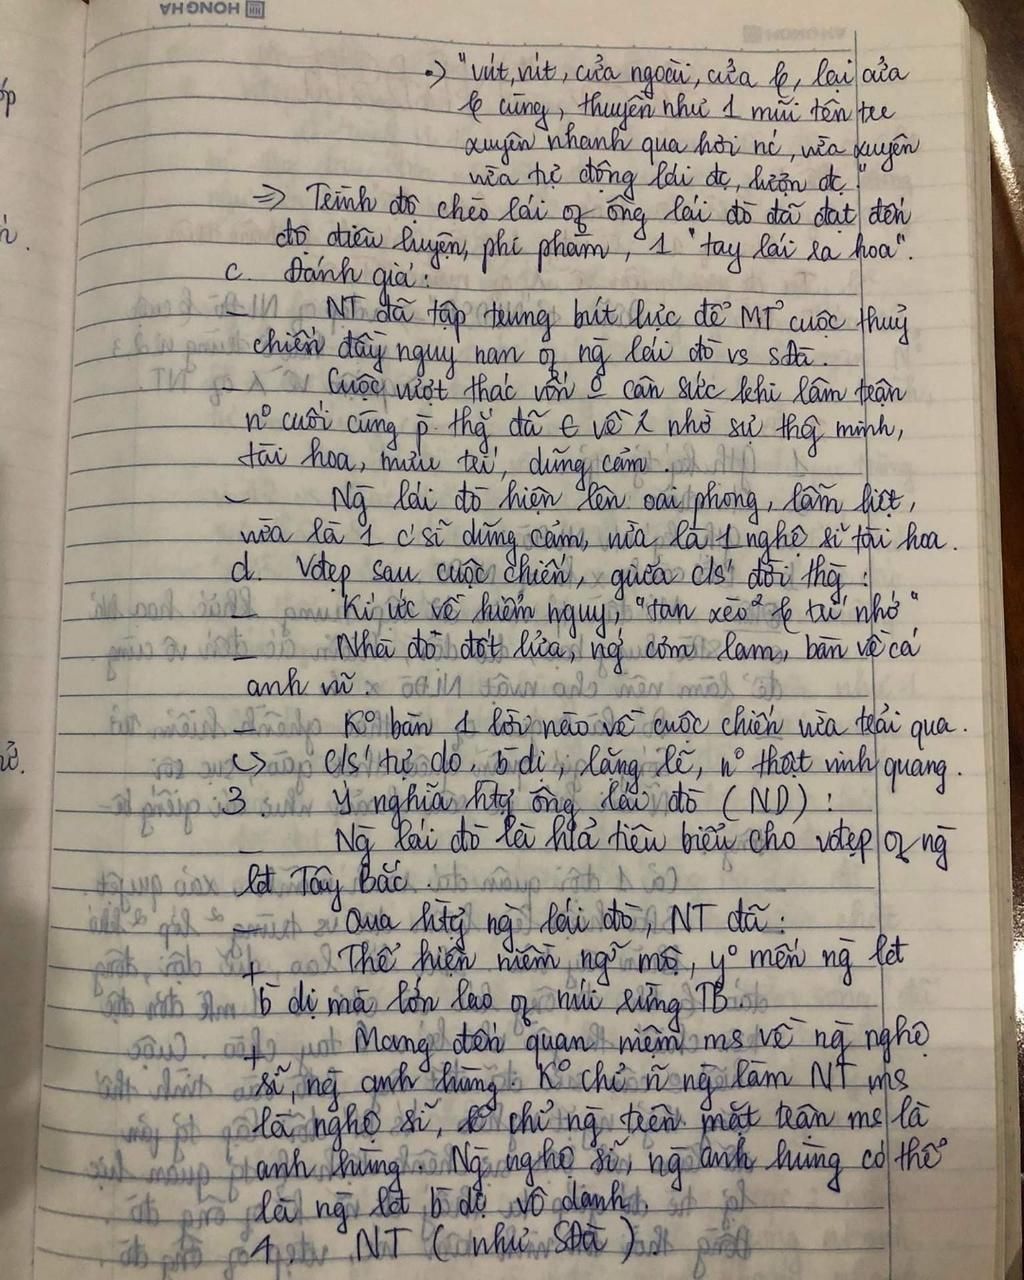 HONG HA
.) "vút, vút, cửa ngoài, cửa tr, lại cửa
tr cùng, thuyền như 1 mũi tên tre
xuyên nhanh qua hơi nc, vừa xuyên
vừa tự động lái đc, lượn đc."
=> Trình độ chèo lái of ông lái đò đã đạt đến
độ điêu luyện, phi phàm, 1 "tay lái ra hoa".
c. Đánh giá:
- NT đã tập trung bút lực để MT cuộc thuỷ
chiến đầy nguy nan of ng̀ lái đò vs sĐà.
- Cuộc vượt thác vốn cân sức khi lâm trận
nº cuối cùng p. thg̃ đã về nhờ sự thg̃ minh,
tài hoa, mưu trí, dũng cảm.
- Ng̀ lái đò hiện lên oai phong, lẫm liệt,
vừa là 1 c'sĩ dũng cảm, vừa là 1 nghệ sĩ tài hoa.
d. Vđẹp sau cuộc chiến, giữa c/s' đời thg̀:
- Kí ức về hiểm nguy, "tan xèo² tr trí nhớ"
- Nhà đò đốt lửa, ng' cơm lam, bàn về cá
anh vũ.
- Kº bàn 1 lời nào về cuộc chiến vừa trải qua.
↪ c/s' tự do, b̀ dị, lặng lẽ, nº thật vinh quang.
3. Ý nghĩa htg̣ ông lái đò (ND):
- Ng̀ lái đò là h/ả tiêu biểu cho vđẹp of ng̀
lđ Tây Bắc.
- Qua htg̣ ng̀ lái đò, NT đã:
+ Thể hiện niềm ngg̃ mộ, yº mến ng̀ lđ
b̀ dị mà lớn lao of núi rừng TB
+ Mang đến quan niệm ms về ng̀ nghệ
sĩ, ng̀ anh hùng. Kº chỉ ñ ng̀ làm NT ms
là nghệ sĩ, kº chỉ ng̀ trên mặt trận ms là
anh hùng. Ng̀ nghệ sĩ, ng̀ anh hùng có thể
là ng̀ lđ b̀ dị, vô danh.
4. NT (như SĐà).